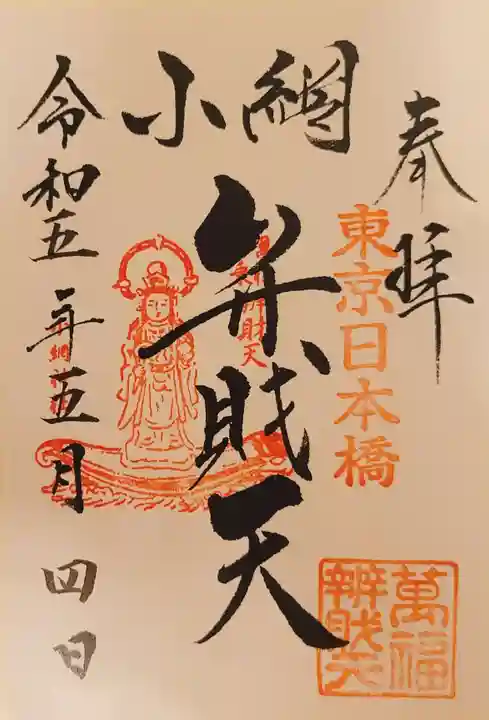 奉拝
東京日本橋
小網
弁財天
令和五年五月四日
萬福
辨財天